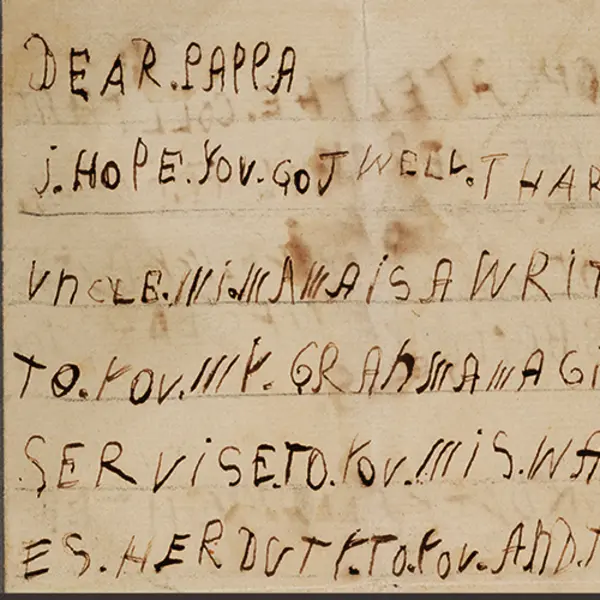 DEAR.PAPPA
j.HOPE.YOU.GOT WELL.THAR
UNCLE.Mi.MAMA iS A WRIT
TO.YOU.MY.GRANMAMA Gi
SERViSE.TO.YOU.MiS.WA
ES.HER DUTY.TO.YOU.AND.